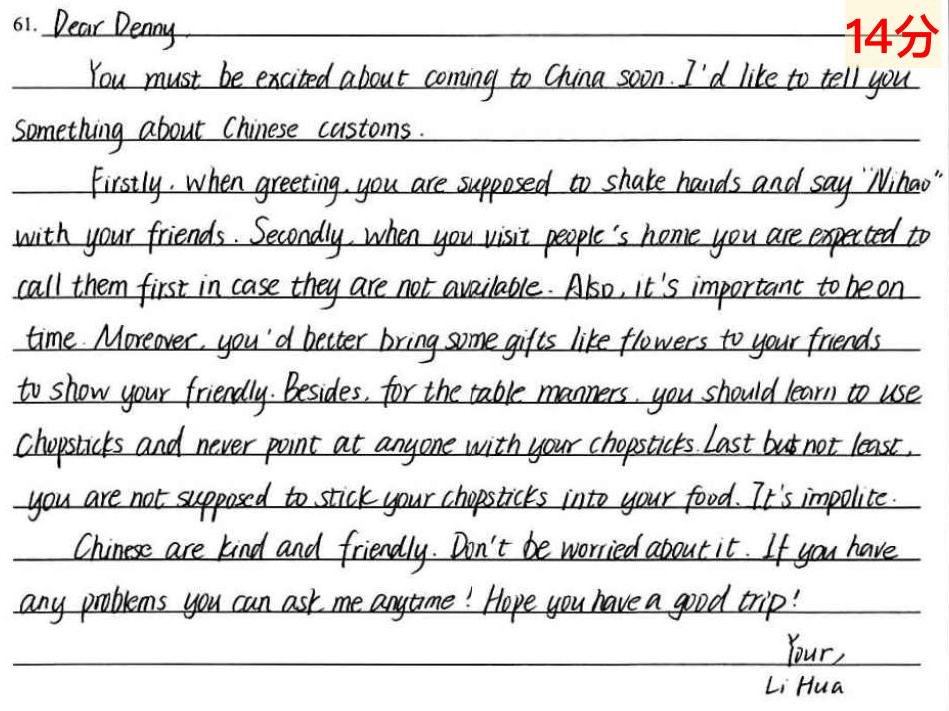 14分
61. Dear Denny,
You must be excited about coming to China soon. I'd like to tell you
something about Chinese customs.
Firstly, when greeting, you are supposed to shake hands and say "Nihao"
with your friends. Secondly, when you visit people's home you are expected to
call them first in case they are not available. Also, it's important to be on
time. Moreover, you'd better bring some gifts like flowers to your friends
to show your friendly. Besides, for the table manners, you should learn to use
Chopsticks and never point at anyone with your chopsticks. Last but not least,
you are not supposed to stick your chopsticks into your food. It's impolite.
Chinese are kind and friendly. Don't be worried about it. If you have
any problems you can ask me anytime! Hope you have a good trip!
Your,
Li Hua